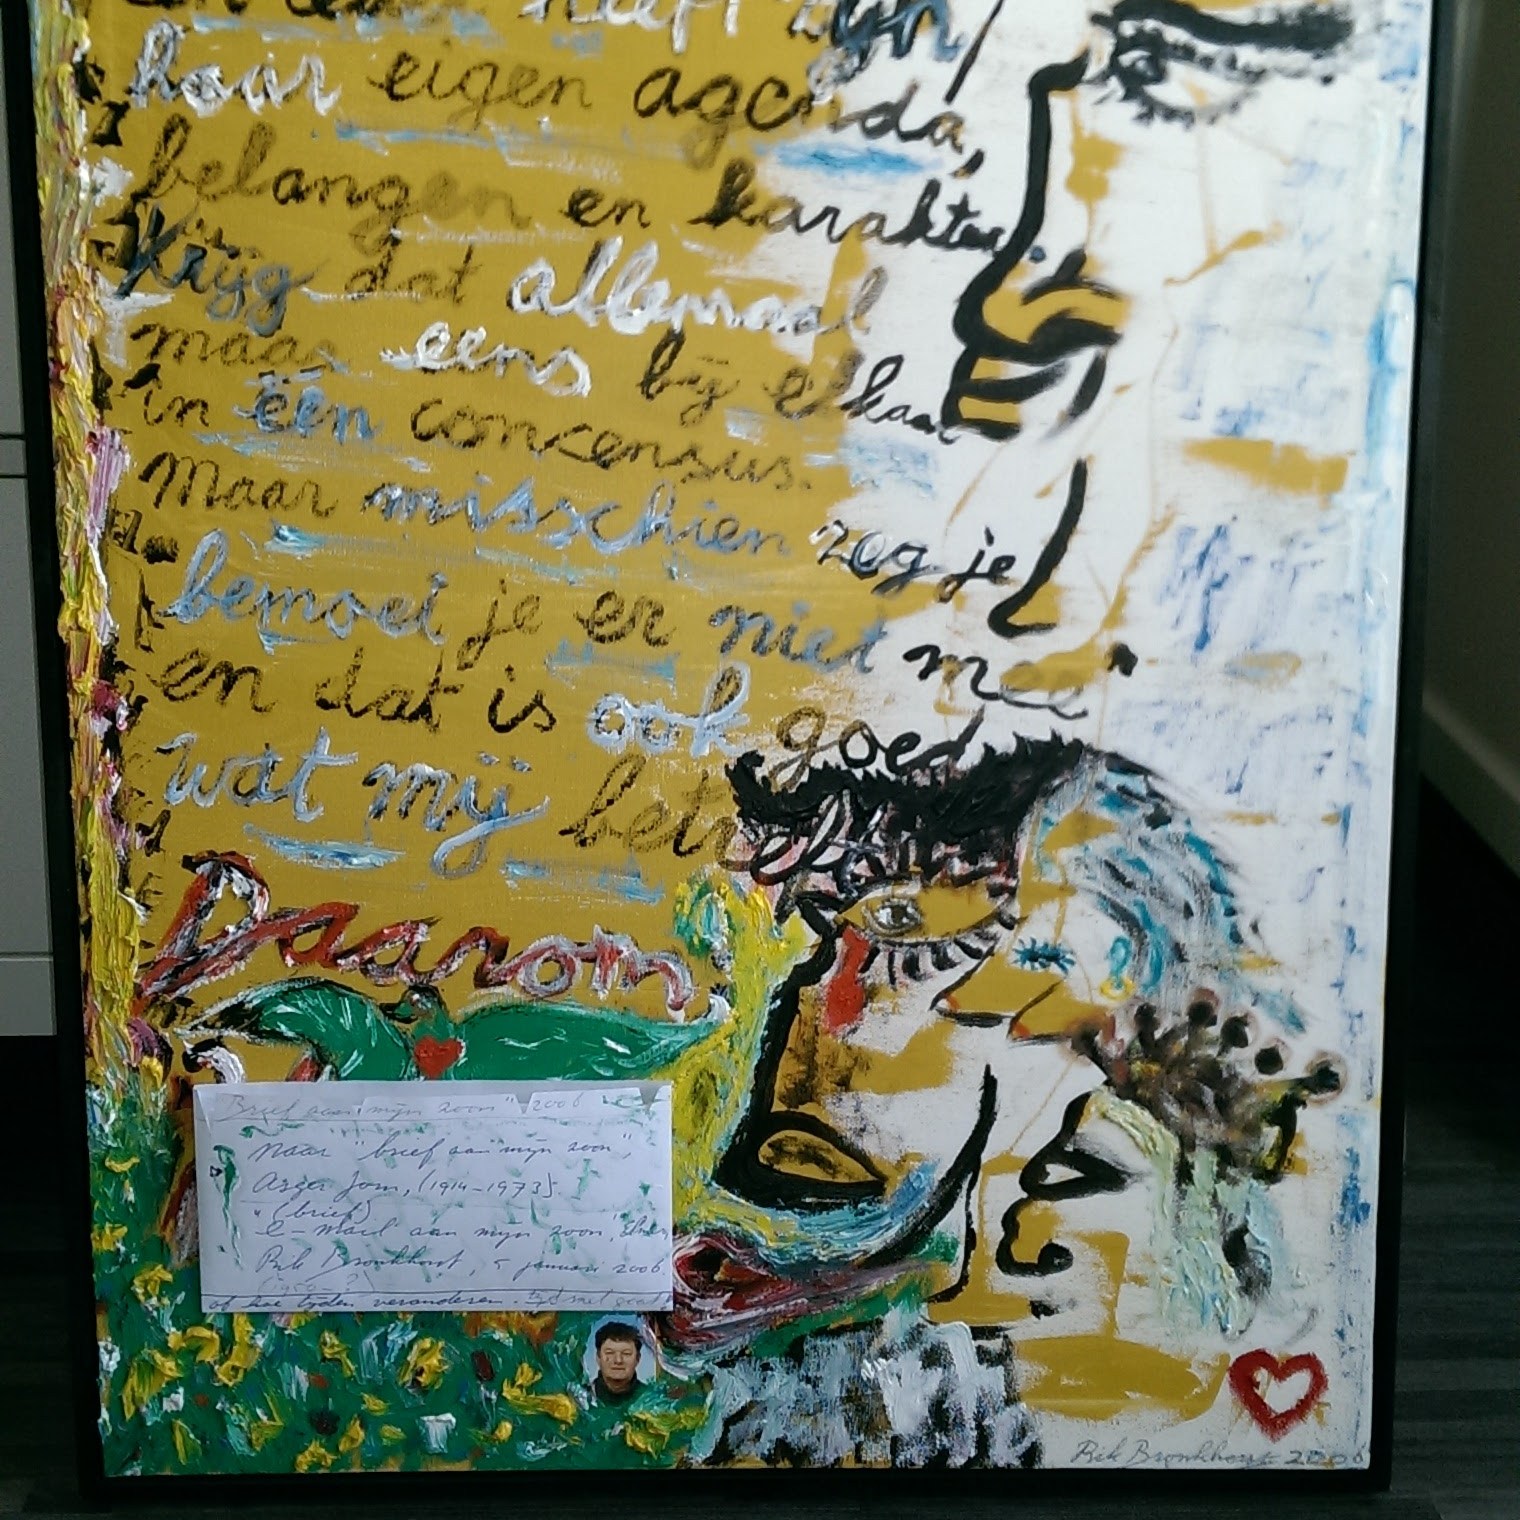 en ieder heeft zijn/
haar eigen agenda,
belangen en karakter.
Krijg dat allemaal
maar eens bij elkaar
in één concensus.
Maar misschien zeg je
bemoei je er niet mee"
en dat is ook goed
wat mij betreft.
Daarom
Brief aan "mijn zoon" 2006
naar "brief aan mijn zoon",
Asger Jorn, (1914-1973).
" (brief)
e-mail aan mijn zoon",
Rik Bronkhorst, 5 januari 2006
of hoe tijden veranderen.
Rik Bronkhorst 2006